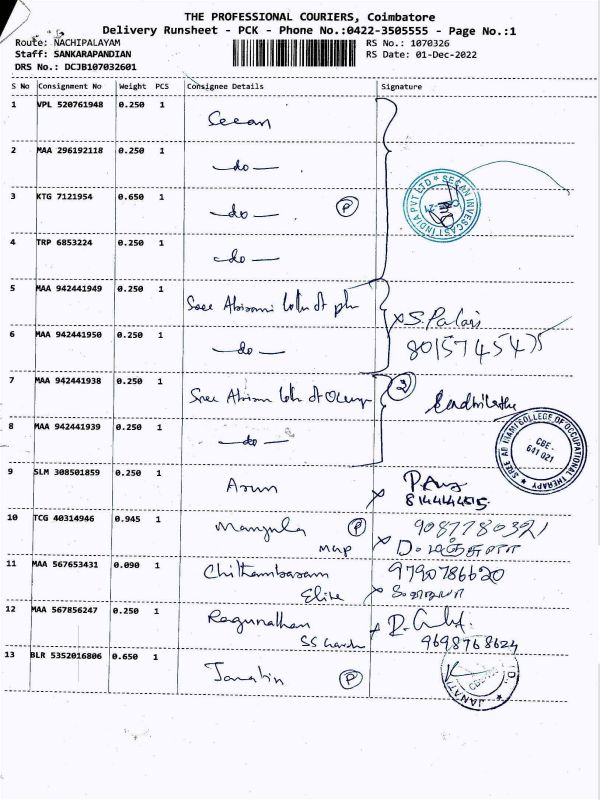 THE PROFESSIONAL COURIERS, Coimbatore
Delivery Runsheet - PCK - Phone No.:0422-3505555 - Page No.:1
Route: NACHIPALAYAM
RS No.: 1070326
Staff: SANKARAPANDIAN
RS Date: 01-Dec-2022
DRS No.: DCJB107032601
S No Consignment No Weight PCS Consignee Details Signature
1 VPL 520761948 0.250 1 Secan
2 MAA 296192118 0.250 1 —do—
SECAN INVESCAST INDIA PVT LTD
3 KTG 7121954 0.650 1 —do— P
4 TRP 6853224 0.250 1 —do—
5 MAA 942441949 0.250 1 Sree Abirami
x S. Palani
6 MAA 942441950 0.250 1 —do— 8015745475
7 MAA 942441938 0.250 1 Sree Abirami 2
8 MAA 942441939 0.250 1 —do—
SREE ABIRAMI COLLEGE OF OCCUPATIONAL THERAPY
CBE-
641 021
9 SLM 308501859 0.250 1 Arun
10 TCG 40314946 0.945 1 Manjula P 9087780321
11 MAA 567653431 0.090 1 Chithambaram 9790786620
Elite
12 MAA 567856247 0.250 1 Ragunathan
9698768624
13 BLR 5352016806 0.650 1 Janatin P